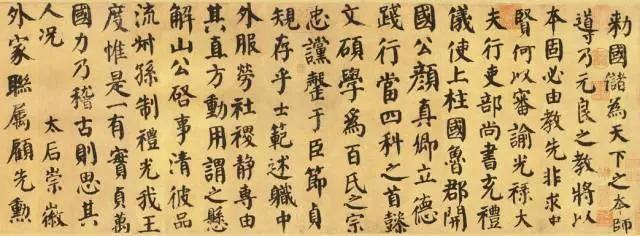 勅國儲為天下之本師
導乃元良之教將以
本固必由教先非求中
賢何以審諭光祿大
夫行吏部尚書充禮
儀使上柱國魯郡開
國公顏真卿立德
踐行當四科之首懿
文碩學為百氏之宗
忠讜罄于臣節貞
規存乎士範述職中
外服勞社稷靜專由
其直方動用謂之懸
解山公啓事清彼品
流叔孫制禮光我王
度惟是一有實貞萬
國力乃稽古則思其
人况 太后崇徽
外家聯屬顧先勳